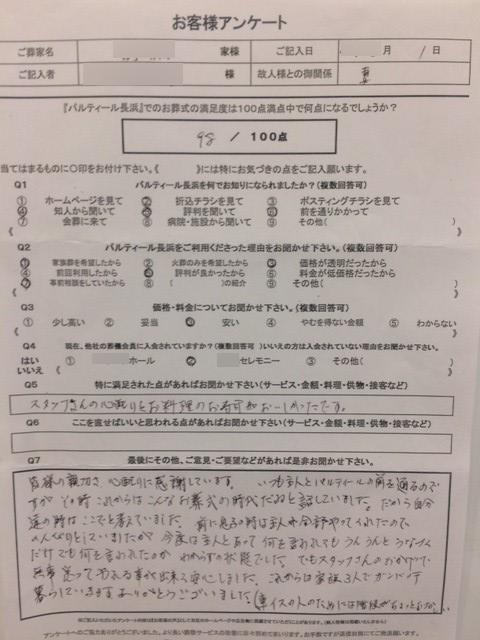 お客様アンケート
ご葬家名 家様 ご記入日 月 / 日
ご記入者 様 故人様との御関係 妻
『パルティール長浜』でのお葬式の満足度は100点満点中で何点になるでしょうか？
98 / 100点
当てはまるものに〇印をお付け下さい。《 》には特にお気づきの点をご記入願います。
Q1 パルティール長浜を何でお知りになられましたか？(複数回答可)
① ホームページを見て ② 折込チラシを見て ③ ポスティングチラシを見て
④ 知人から聞いて ⑤ 評判を聞いて ⑥ 前を通りかかって
⑦ 会葬に来て ⑧ 病院・施設から聞いて ⑨ その他( )
《 》
Q2 パルティール長浜をご利用くださった理由をお聞かせ下さい。(複数回答可)
① 家族葬を希望したから ② 火葬のみを希望したから ③ 価格が透明だったから
④ 前回利用したから ⑤ 評判が良かったから ⑥ 料金が低価格だったから
⑦ 事前相談をしていたから ⑧ ( )の紹介 ⑨ その他( )
《 》
Q3 価格・料金についてお聞かせ下さい。(複数回答可)
① 少し高い ② 妥当 ③ 安い ④ やむを得ない金額 ⑤ わからない
《 》
Q4 現在、他社の葬儀会員に入会されていますか？(複数回答可)いいえの方は入会されていない理由をお聞かせ下さい。
はい ① ホール ② セレモニー ③ その他( )
いいえ 《 》
Q5 特に満足された点があればお聞かせ下さい(サービス・金額・料理・供物・接客など)
スタッフさんの心配りとお料理のお寿司がおいしかったです。
Q6 ここを直せばいいと思われる点があればお聞かせ下さい(サービス・金額・料理・供物・接客など)
Q7 最後にその他、ご意見・ご要望などがあれば是非お聞かせ下さい。
皆様の親切さ、心配りに感謝しています。 いつも主人とパルティールの前を通るので
すが その時 これからはこんなお葬式の時代だねと話していました。だから自分
達の時はここでと考えていました。 前に息子の時は主人が全部やってくれたので
のんびりとしていましたが 今度は主人とあって何を言われてもうんうんとうなづく
だけでも何を言われたのか わからずの状態でした。でもスタッフさんのおかげで
無事送ってやれる事が出来て安心しました。これからは家族3人でガンバッテ
暮らしていきます ありがとうございました。 車イスの人のためには階段がちょっと
※ご記入いただいたアンケート内容は
アンケートへのご協力ありがとうございました。より良い葬祭サービスの改善に日々努めてまいります。